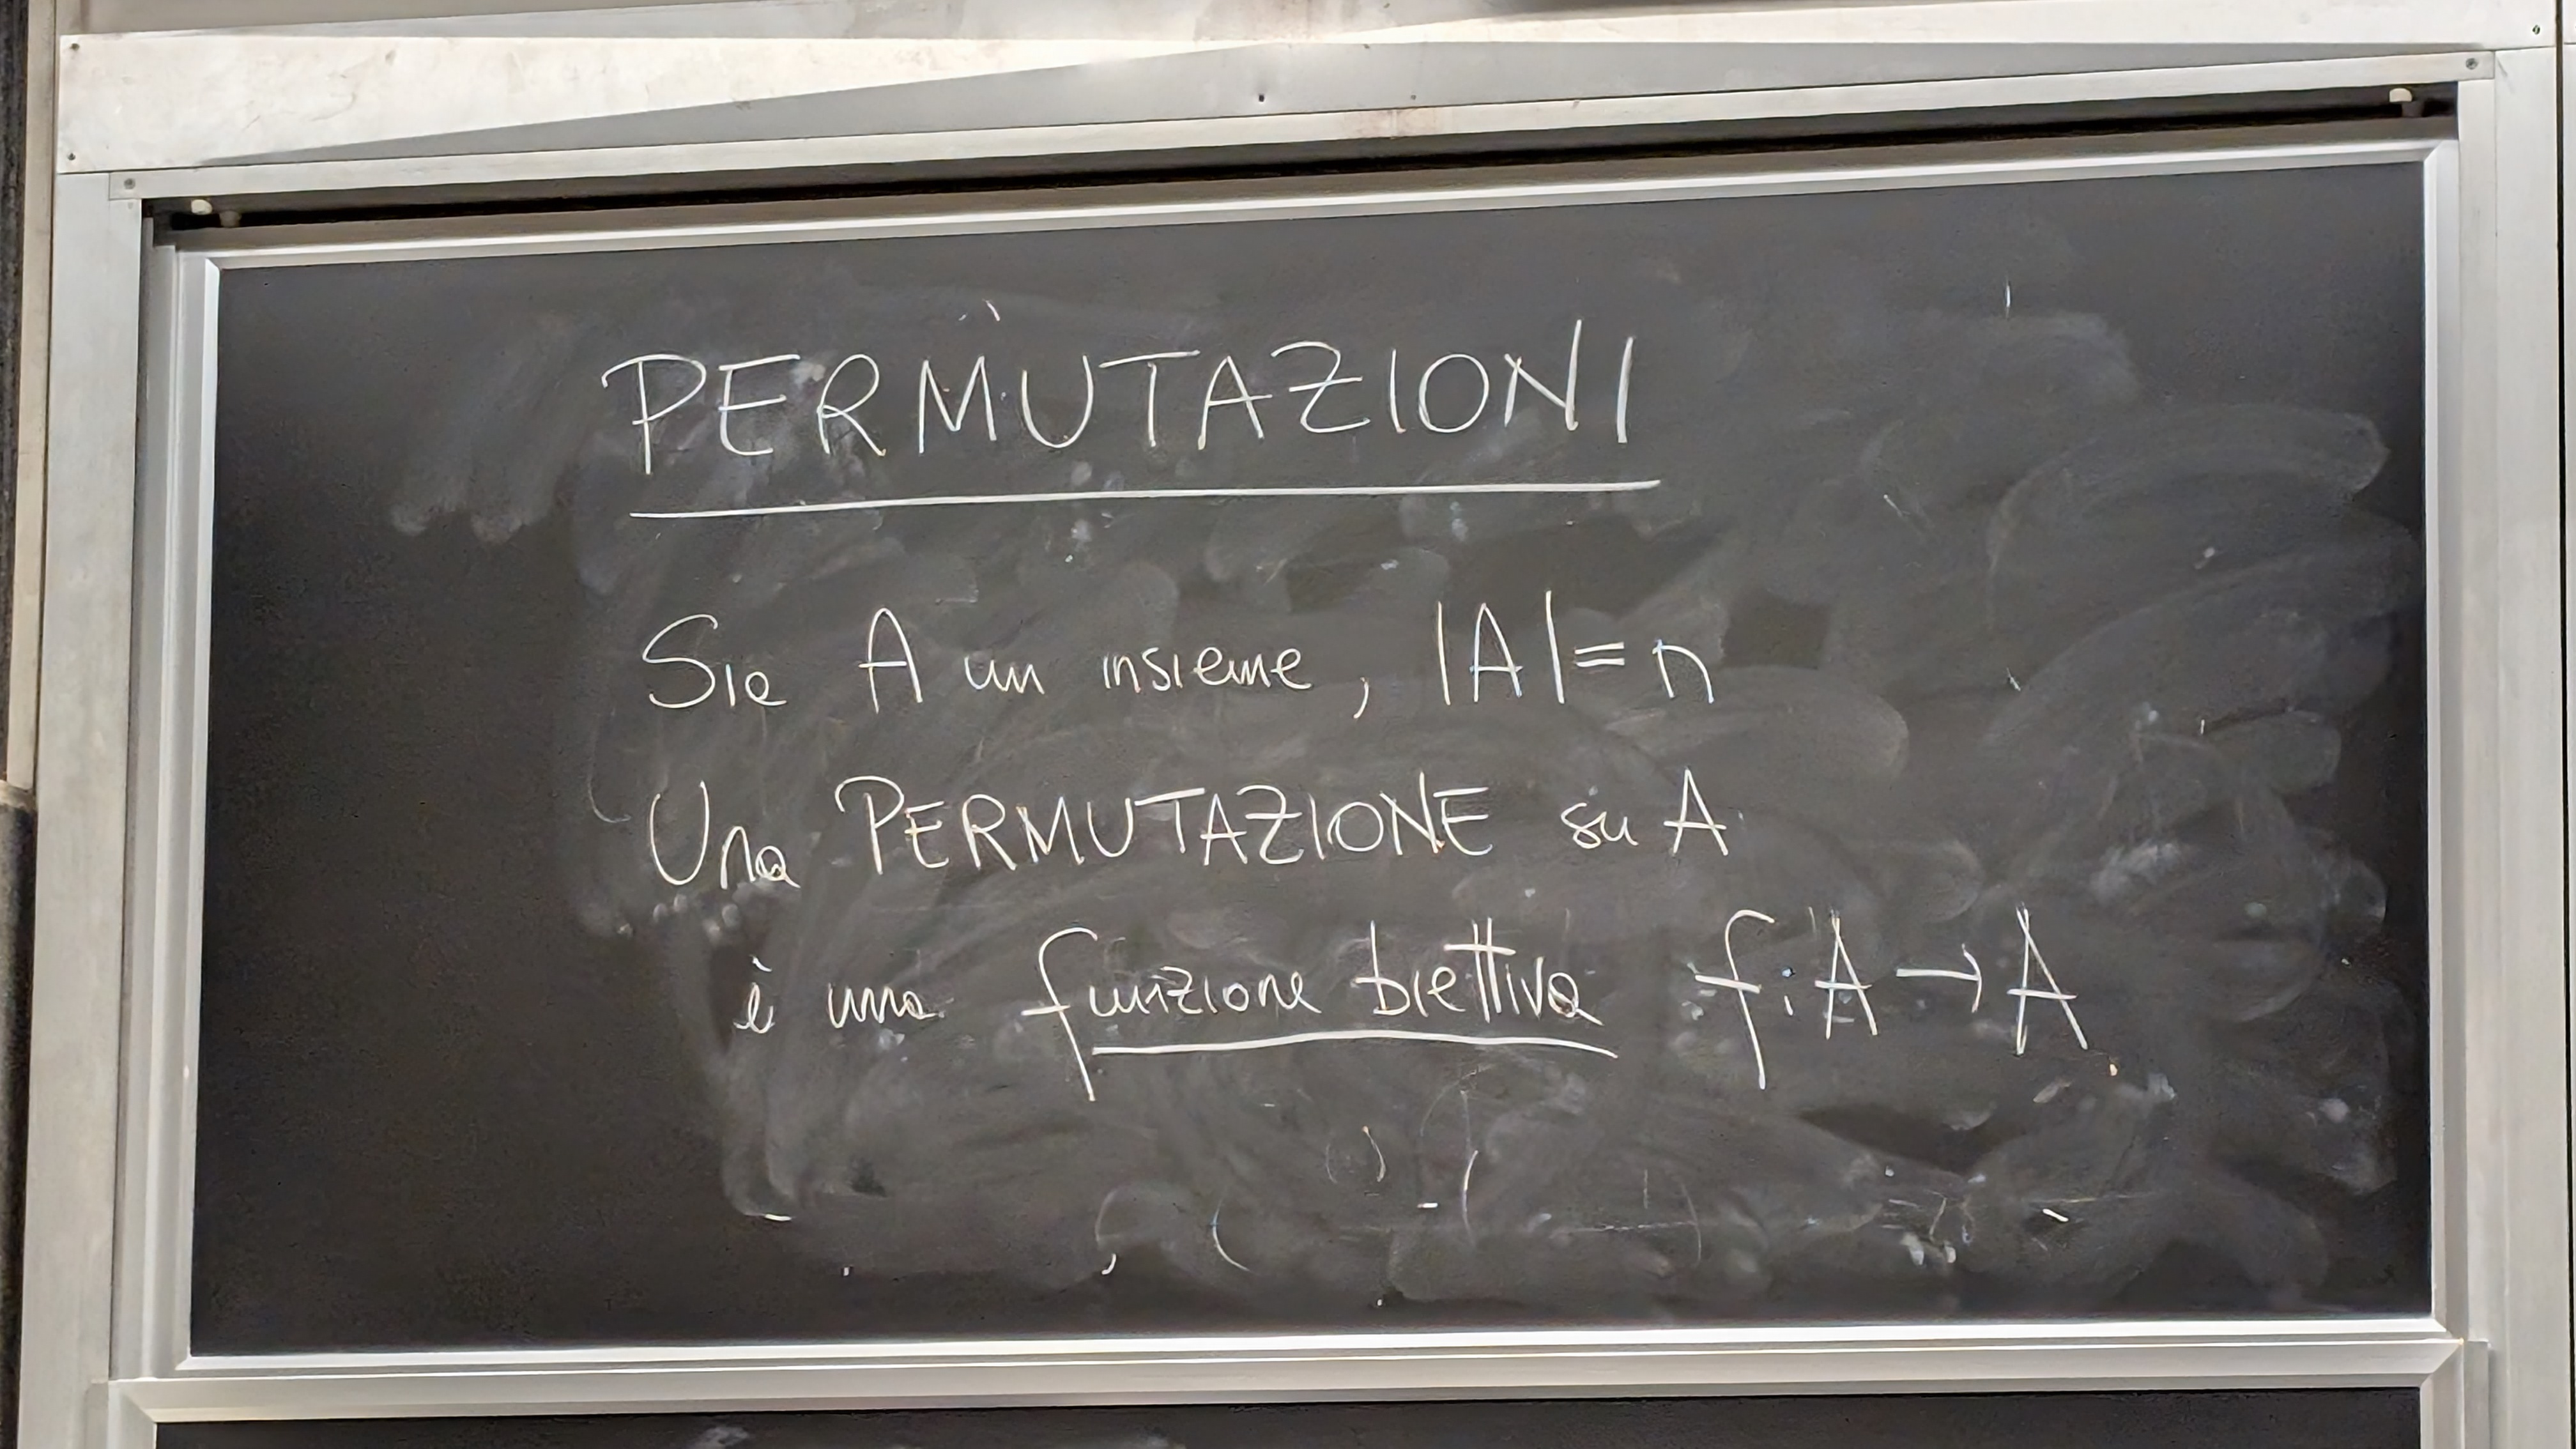 PERMUTAZIONI
Sia A un insieme, |A| = n
Una PERMUTAZIONE su A
è una funzione biettiva f: A → A